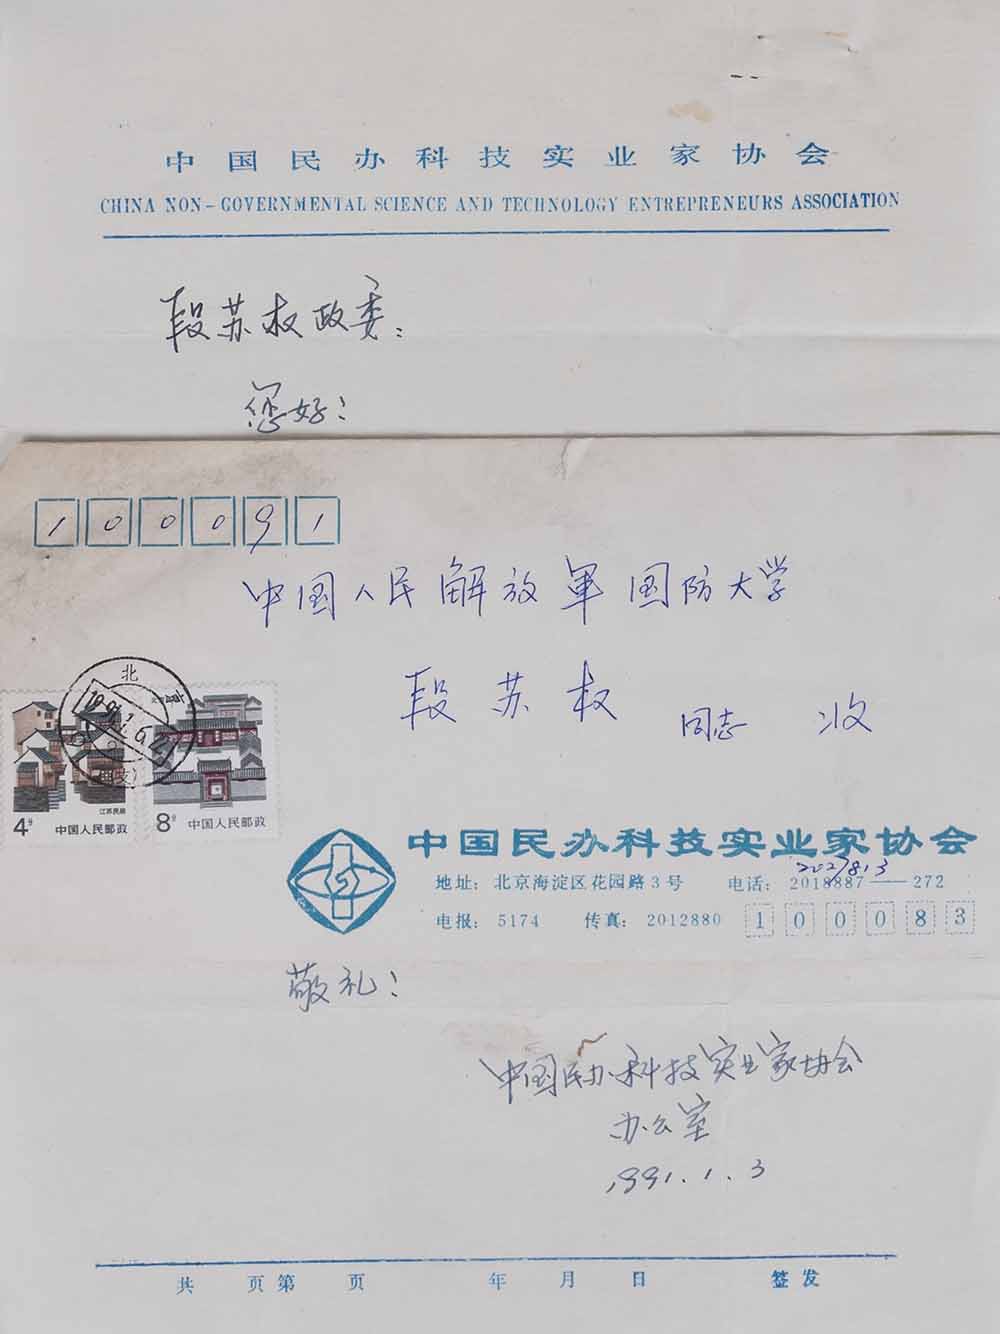 中国民办科技实业家协会
CHINA NON-GOVERNMENTAL SCIENCE AND TECHNOLOGY ENTREPRENEURS ASSOCIATION
段苏权政委：
您好！
100091
中国人民解放軍国防大学
段苏权 同志 收
北京
4分 江苏民居 中国人民邮政
8分 中国人民邮政
中国民办科技实业家协会
2027813
地址：北京海淀区花园路3号 电话：2018887——272
电报：5174 传真：2012880 100083
敬礼！
中国民办科技实业家协会
办公室
1991.1.3
共 页第 页 年 月 日 签发